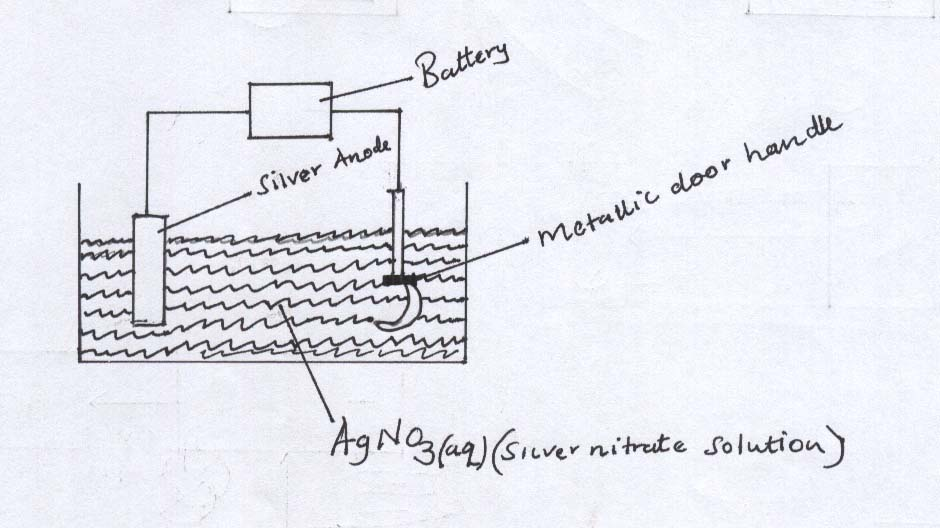 Battery
Silver Anode
Metallic door handle
AgNO3(aq) (Silver nitrate solution)